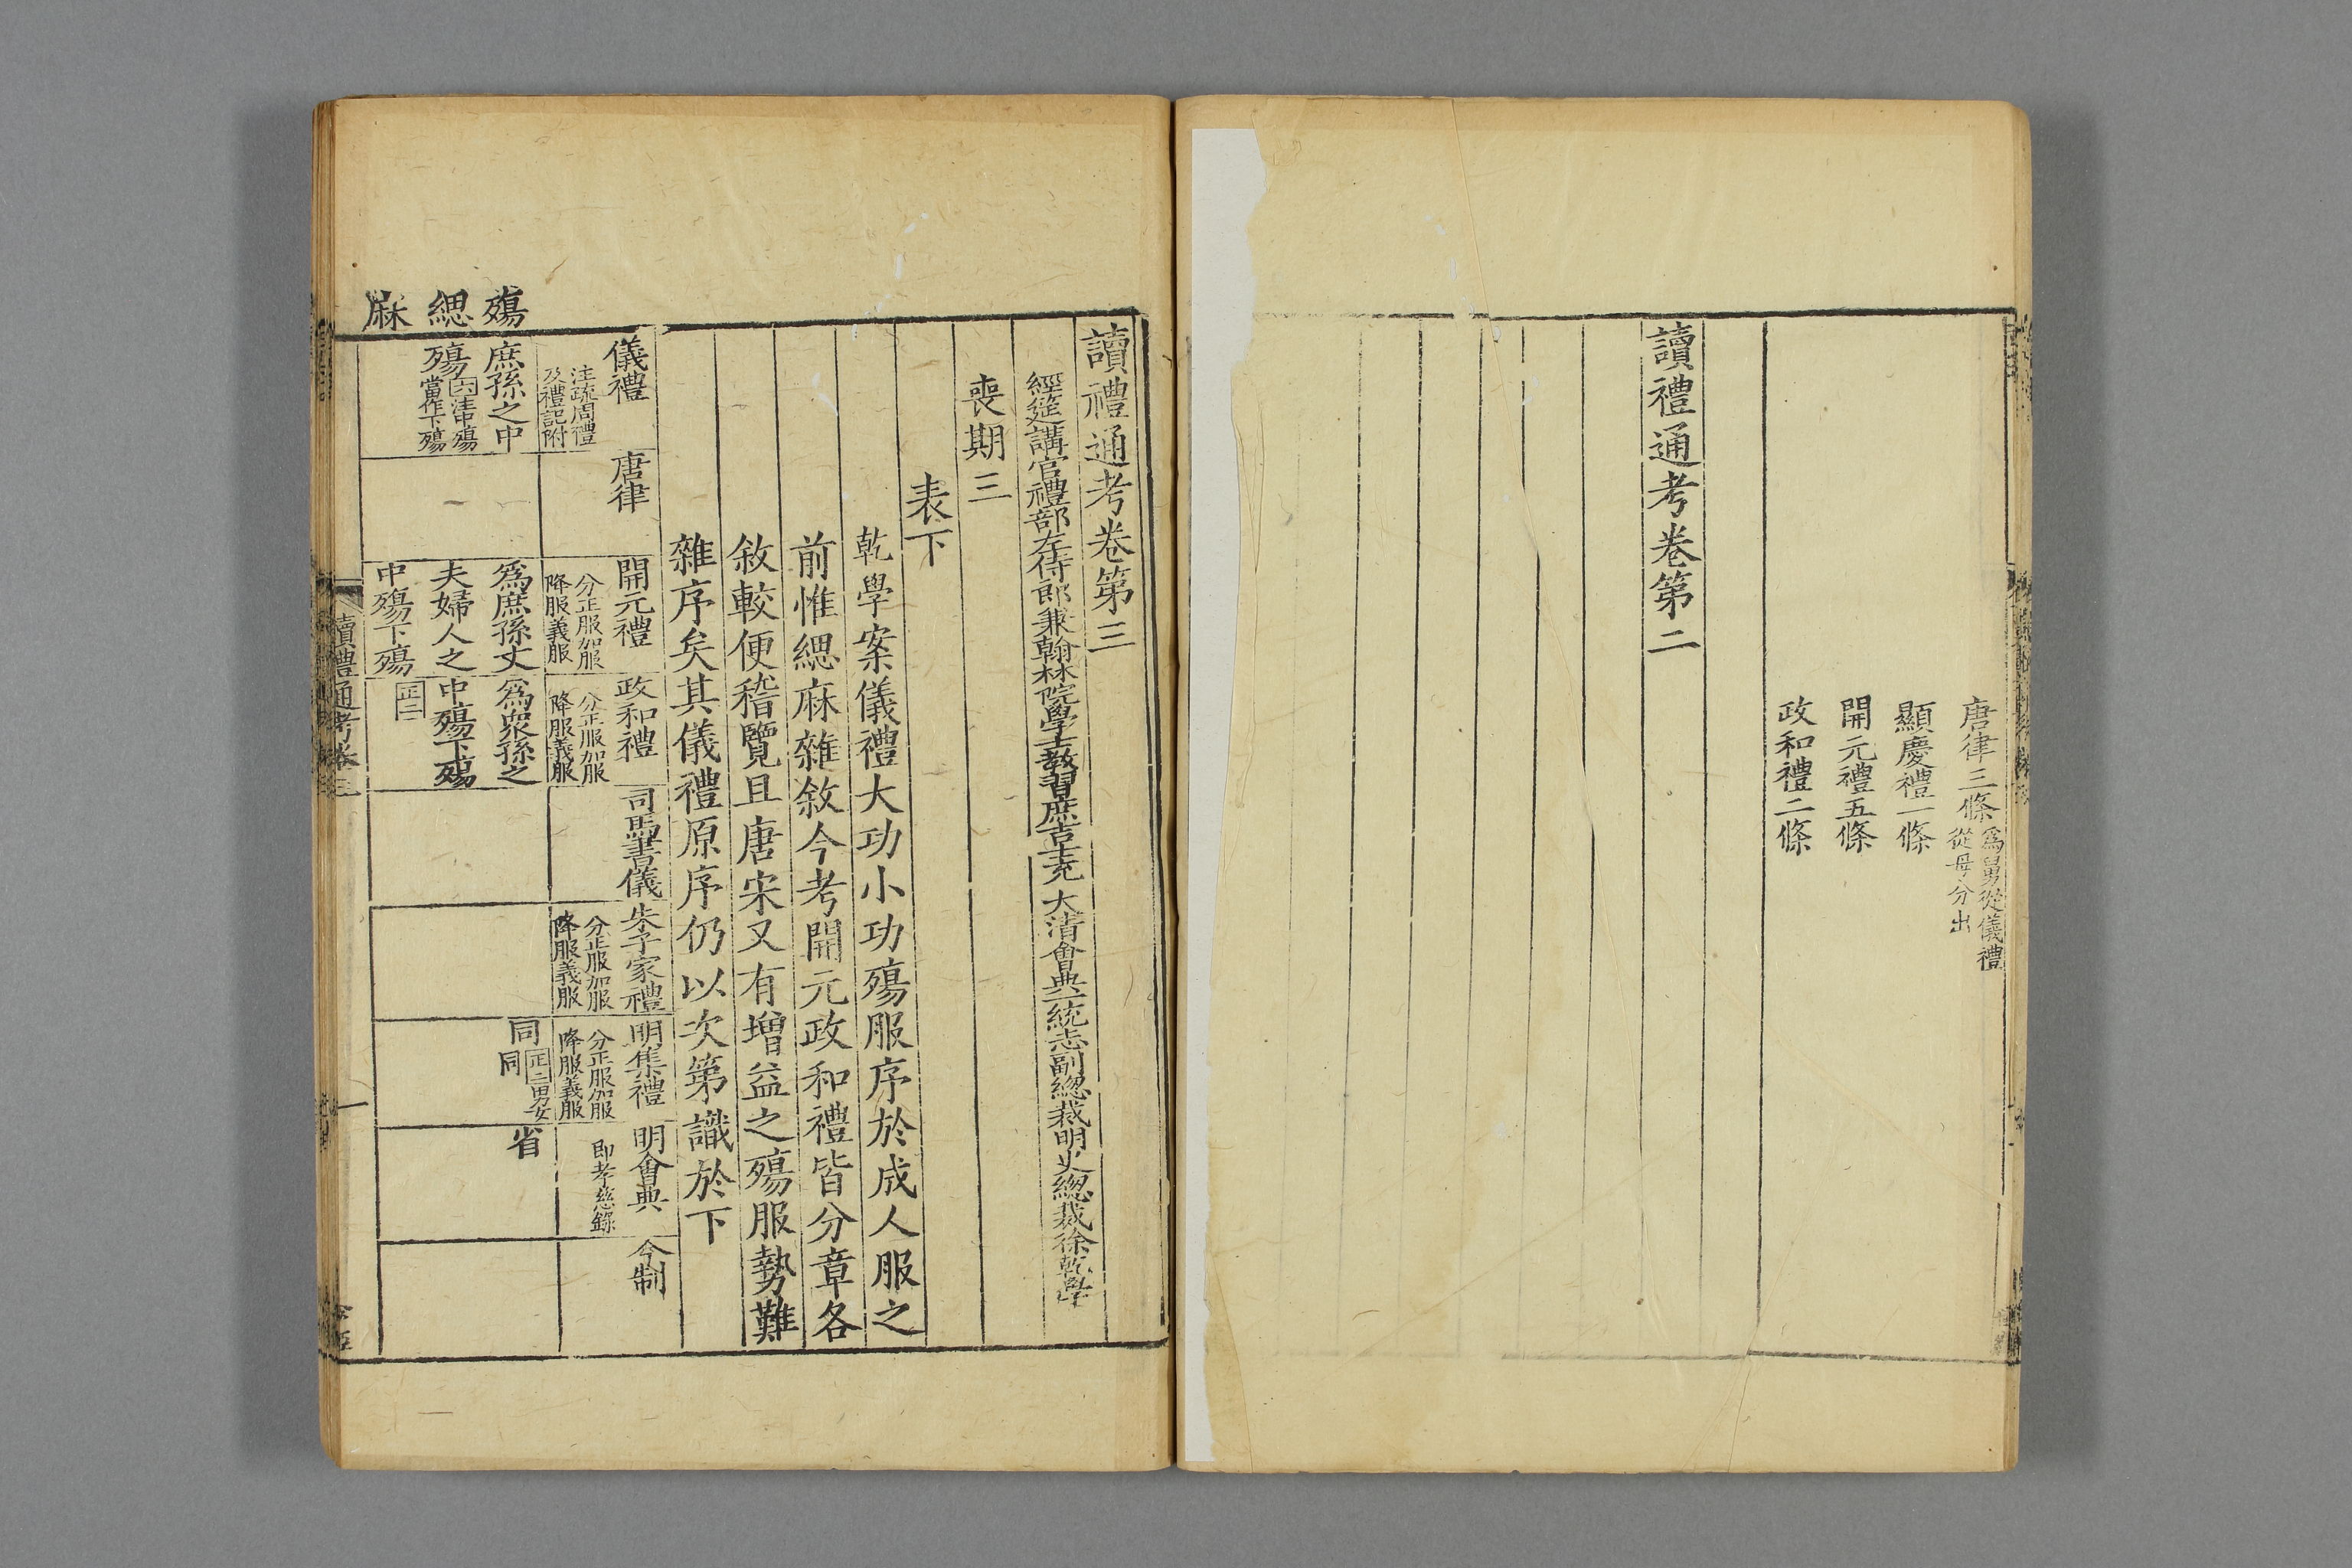 唐律三條爲舅從儀禮從母分出
顯慶禮一條
開元禮五條
政和禮二條
讀禮通考卷第二
讀禮通考卷第三
經筵講官禮部左侍郎兼翰林院學士教習庶吉士充 大清會典一統志副總裁明史總裁徐乾學
喪期三
表下
乾學案儀禮大功小功殤服序於成人服之
前惟緦麻雜敘今考開元政和禮皆分章各
敘較便稽覽且唐宋又有增益之殤服勢難
雜序矣其儀禮原序仍以次第識於下
殤緦麻
儀禮
注疏周禮
及禮記附
唐律
開元禮
分正服加服
降服義服
政和禮
分正服加服
降服義服
司馬書儀
朱子家禮
分正服加服
降服義服
明集禮
分正服加服
降服義服
明會典
即孝慈錄
今制
庶孫之中
殤六注中殤當作下殤
爲庶孫丈
夫婦人之
中殤下殤
爲衆孫之
中殤下殤
正二
同正二男女同
省
讀禮通考卷三
一